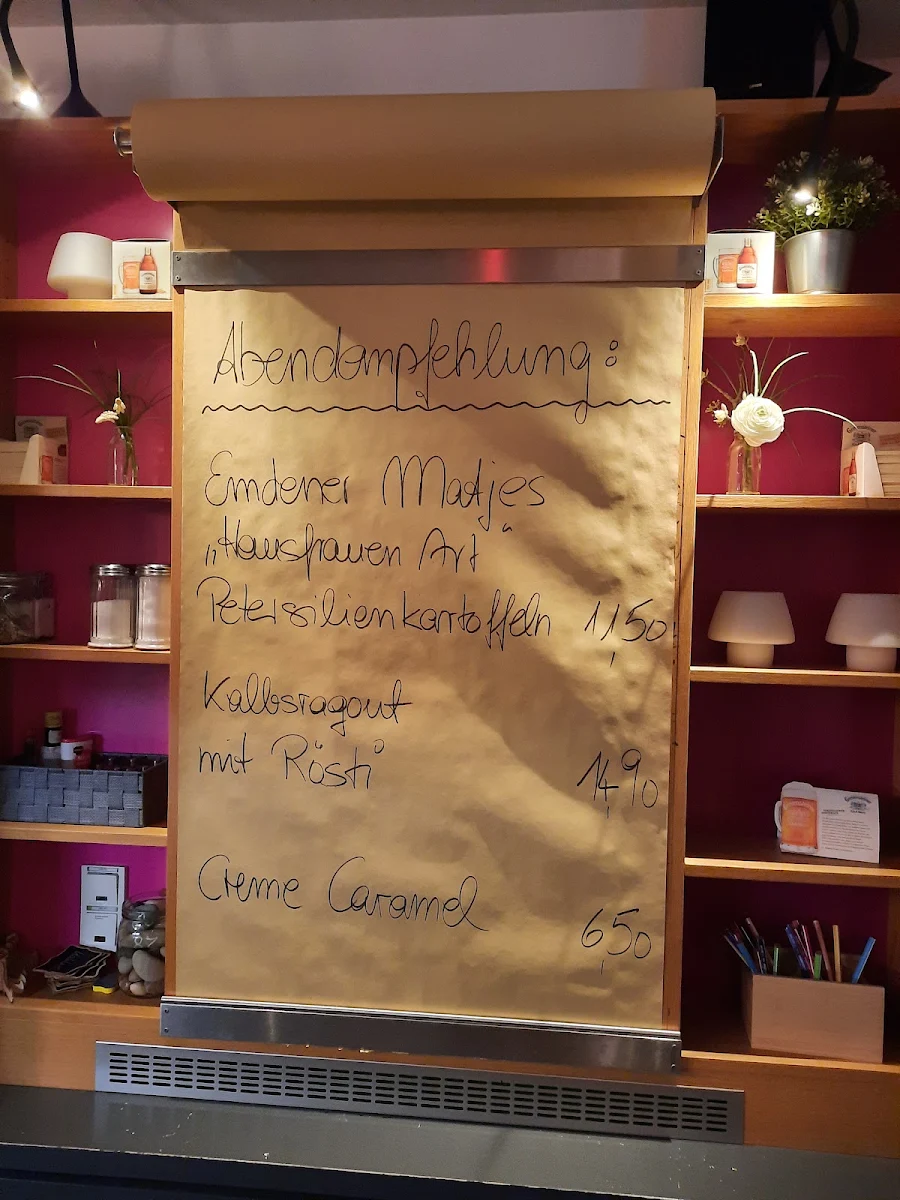 Abendempfehlung:
Emdener Matjes
„Hausfrauen Art“
Petersilienkartoffeln 11,50
Kalbsragout
mit Rösti 14,90
Creme Caramel
6,50